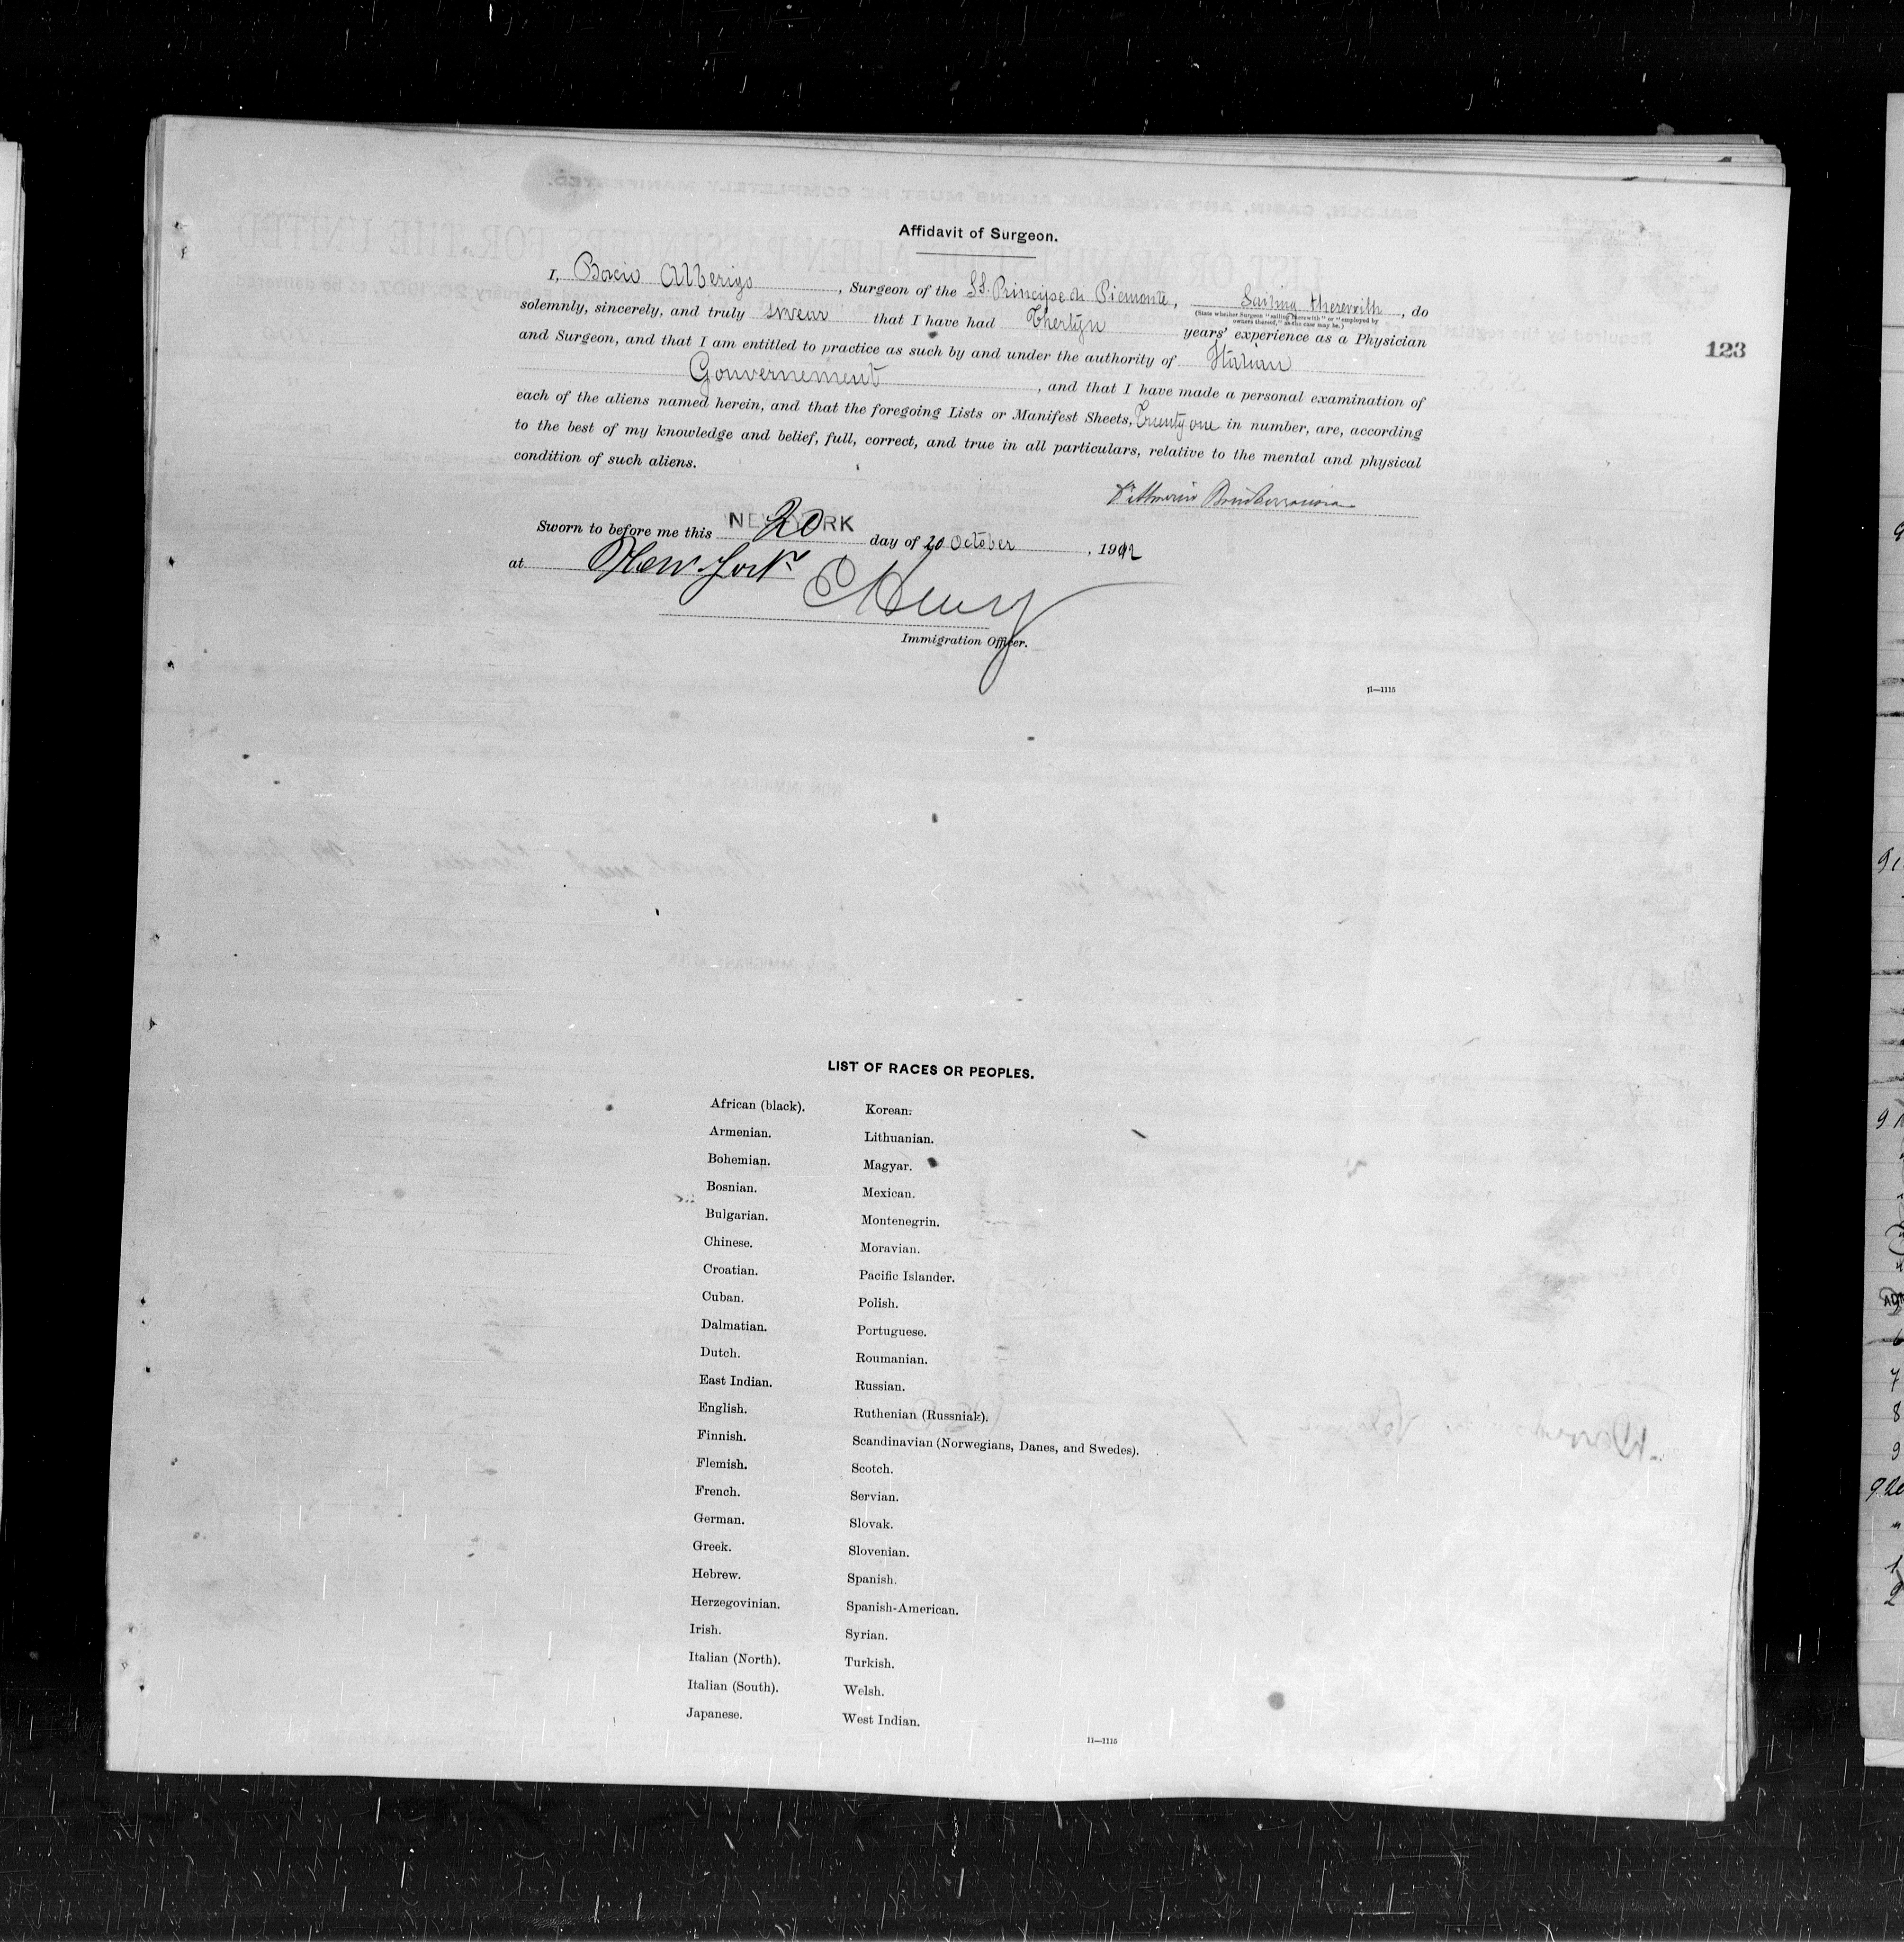 Affidavit of Surgeon.
I, Bocio Alberigo, Surgeon of the SS. Principe di Piemonte, Sailing therewith, do
(State whether Surgeon "sailing therewith" or "employed by
owners thereof," as the case may be.)
solemnly, sincerely, and truly swear that I have had years' experience as a Physician
and Surgeon, and that I am entitled to practice as such by and under the authority of Italian
Gouvernement, and that I have made a personal examination of
each of the aliens named herein, and that the foregoing Lists or Manifest Sheets, Twenty one in number, are, according
to the best of my knowledge and belief, full, correct, and true in all particulars, relative to the mental and physical
condition of such aliens.
Sworn to before me this NEW YORK 20 day of 20 October, 1912
at New York
Immigration Officer.
11—1115
123
LIST OF RACES OR PEOPLES.
African (black).
Armenian.
Bohemian.
Bosnian.
Bulgarian.
Chinese.
Croatian.
Cuban.
Dalmatian.
Dutch.
East Indian.
English.
Finnish.
Flemish.
French.
German.
Greek.
Hebrew.
Herzegovinian.
Irish.
Italian (North).
Italian (South).
Japanese.
Korean.
Lithuanian.
Magyar.
Mexican.
Montenegrin.
Moravian.
Pacific Islander.
Polish.
Portuguese.
Roumanian.
Russian.
Ruthenian (Russniak).
Scandinavian (Norwegians, Danes, and Swedes).
Scotch.
Servian.
Slovak.
Slovenian.
Spanish.
Spanish-American.
Syrian.
Turkish.
Welsh.
West Indian.
11—1115